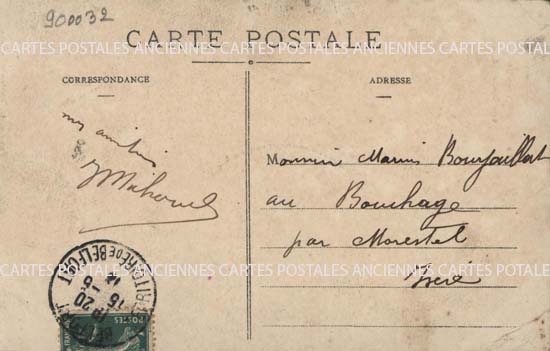 900032
CARTE POSTALE
CARTES POSTALES ANCIENNES CARTES POSTALES ANCIENNES CARTES POSTALES
CORRESPONDANCE
ADRESSE
mes amitiés
Monsieur Marius
au Bouchage
par Morestel
Isère
CARTES POSTALES ANCIENNES CARTES POSTALES ANCIENNES CARTES POSTALES
BELFORT
POSTES